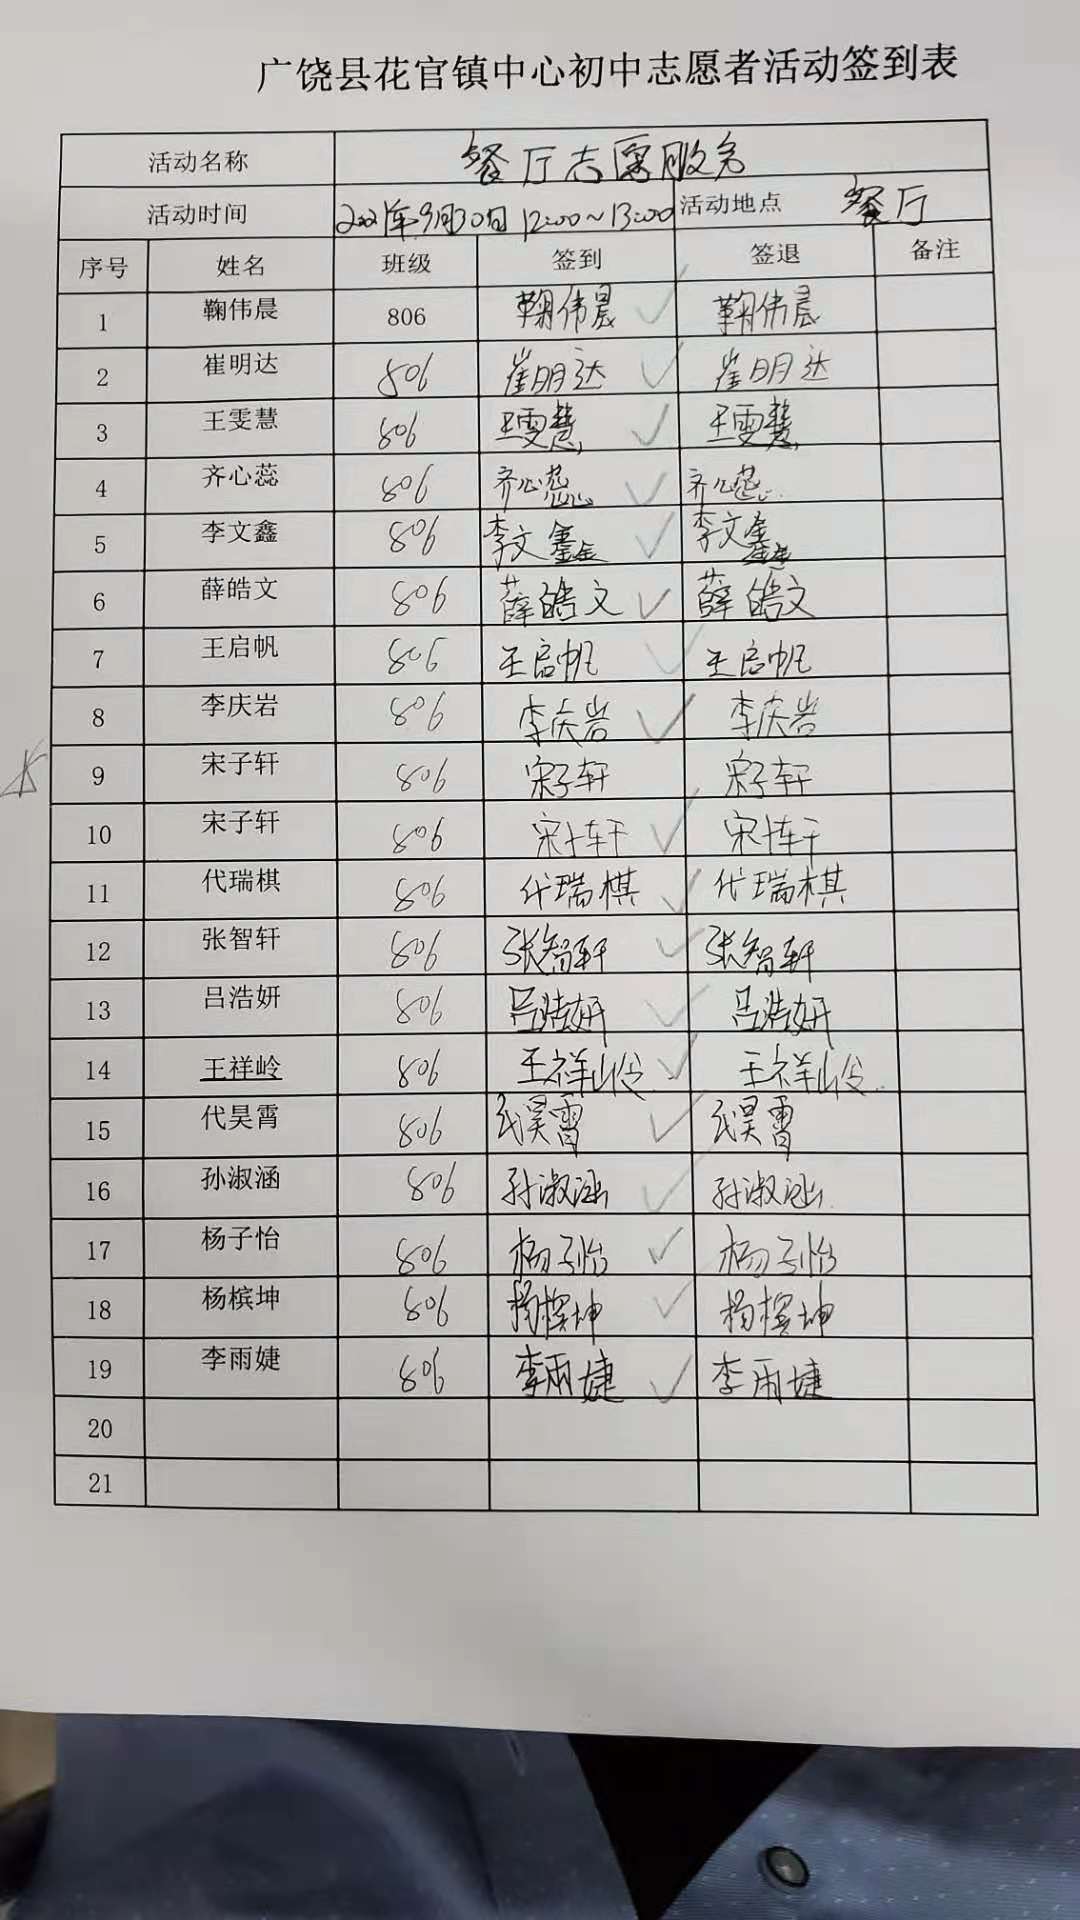 广饶县花官镇中心初中志愿者活动签到表
活动名称 餐厅志愿服务
活动时间 2021年9月30日 12:00~13:00 活动地点 餐厅
序号 姓名 班级 签到 签退 备注
1 鞠伟晨 806 鞠伟晨 鞠伟晨
2 崔明达 806 崔明达 崔明达
3 王雯慧 806 王雯慧 王雯慧
4 齐心蕊 806 齐心蕊 齐心蕊
5 李文鑫 806 李文鑫 李文鑫
6 薛皓文 806 薛皓文 薛皓文
7 王启帆 806 王启帆 王启帆
8 李庆岩 806 李庆岩 李庆岩
9 宋子轩 806 宋子轩 宋子轩
10 宋子轩 806 宋子轩 宋子轩
11 代瑞棋 806 代瑞棋 代瑞棋
12 张智轩 806 张智轩 张智轩
13 吕浩妍 806 吕浩妍 吕浩妍
14 王祥岭 806 王祥岭 王祥岭
15 代昊霄 806 代昊霄 代昊霄
16 孙淑涵 806 孙淑涵 孙淑涵
17 杨子怡 806 杨子怡 杨子怡
18 杨槟坤 806 杨槟坤 杨槟坤
19 李雨婕 806 李雨婕 李雨婕
20
21